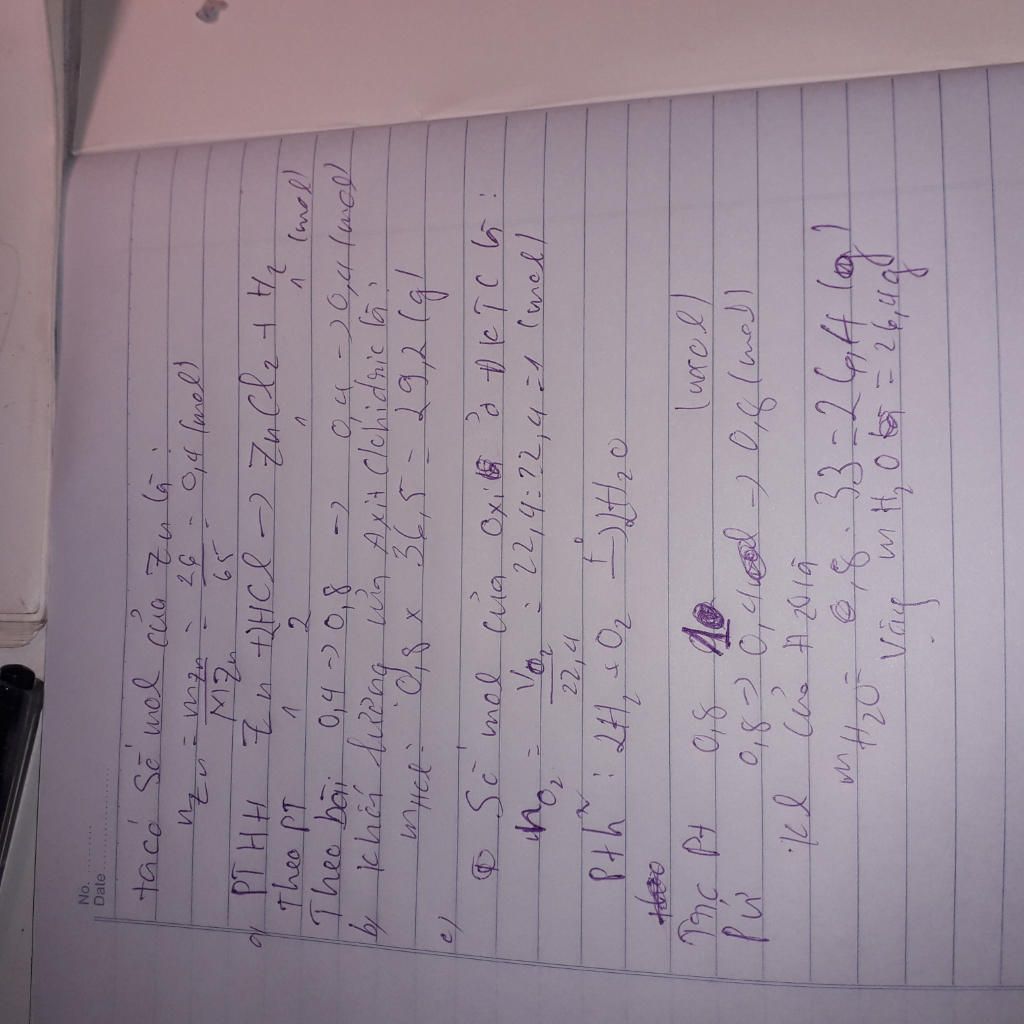 No. ..........
Date ..........
ta có Số mol của Zn là:
nZn = mZn/MZn = 26/65 = 0,4 (mol)
a) PTHH Zn + 2HCl -> ZnCl2 + H2
Theo PT 1 2 1 1 (mol)
Theo bài 0,4 -> 0,8 -> 0,4 -> 0,4 (mol)
b) Khối lượng của Axit Clohidric là:
mHCl = 0,8 x 36,5 = 29,2 (g)
c)
Số mol của Oxi ở ĐKTC là:
nO2 = VO2/22,4 = 22,4 : 22,4 = 1 (mol)
Pth: 2H2 + O2 t° -> 2H2O
Trc Pt 0,8 1 (mol)
Pứ 0,8 -> 0,4 -> 0,8 (mol)
Kl của H2O là
mH2O = 0,8 . 33 = 26,4 (g)
Vậy mH2O = 26,4g